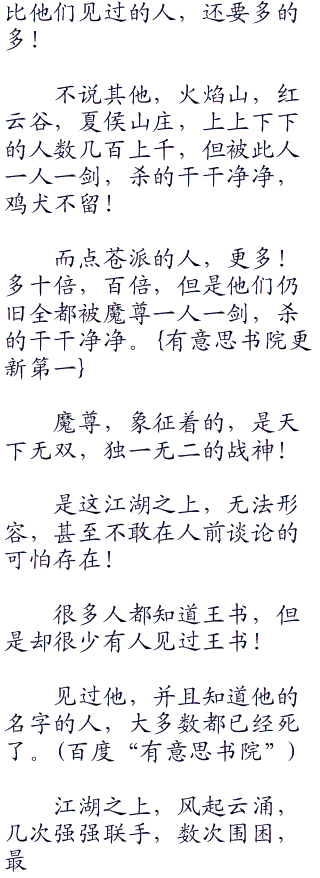 比他们见过的人，还要多的
多！
不说其他，火焰山，红
云谷，夏侯山庄，上上下下
的人数几百上千，但被此人
一人一剑，杀的干干净净，
鸡犬不留！
而点苍派的人，更多！
多十倍，百倍，但是他们仍
旧全都被魔尊一人一剑，杀
的干干净净。{有意思书院更
新第一}
魔尊，象征着的，是天
下无双，独一无二的战神！
是这江湖之上，无法形
容，甚至不敢在人前谈论的
可怕存在！
很多人都知道王书，但
是却很少有人见过王书！
见过他，并且知道他的
名字的人，大多数都已经死
了。(百度“有意思书院”)
江湖之上，风起云涌，
几次强强联手，数次围困，
最